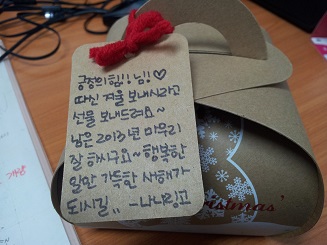 긍정의힘!! 님!! ♡
따신 겨울 보내시라고
선물 보내드려요~
남은 2013년 마무리
잘 하시구요~ 행복한
일만 가득한 새해가
되시길,, -나나링고
Christmas